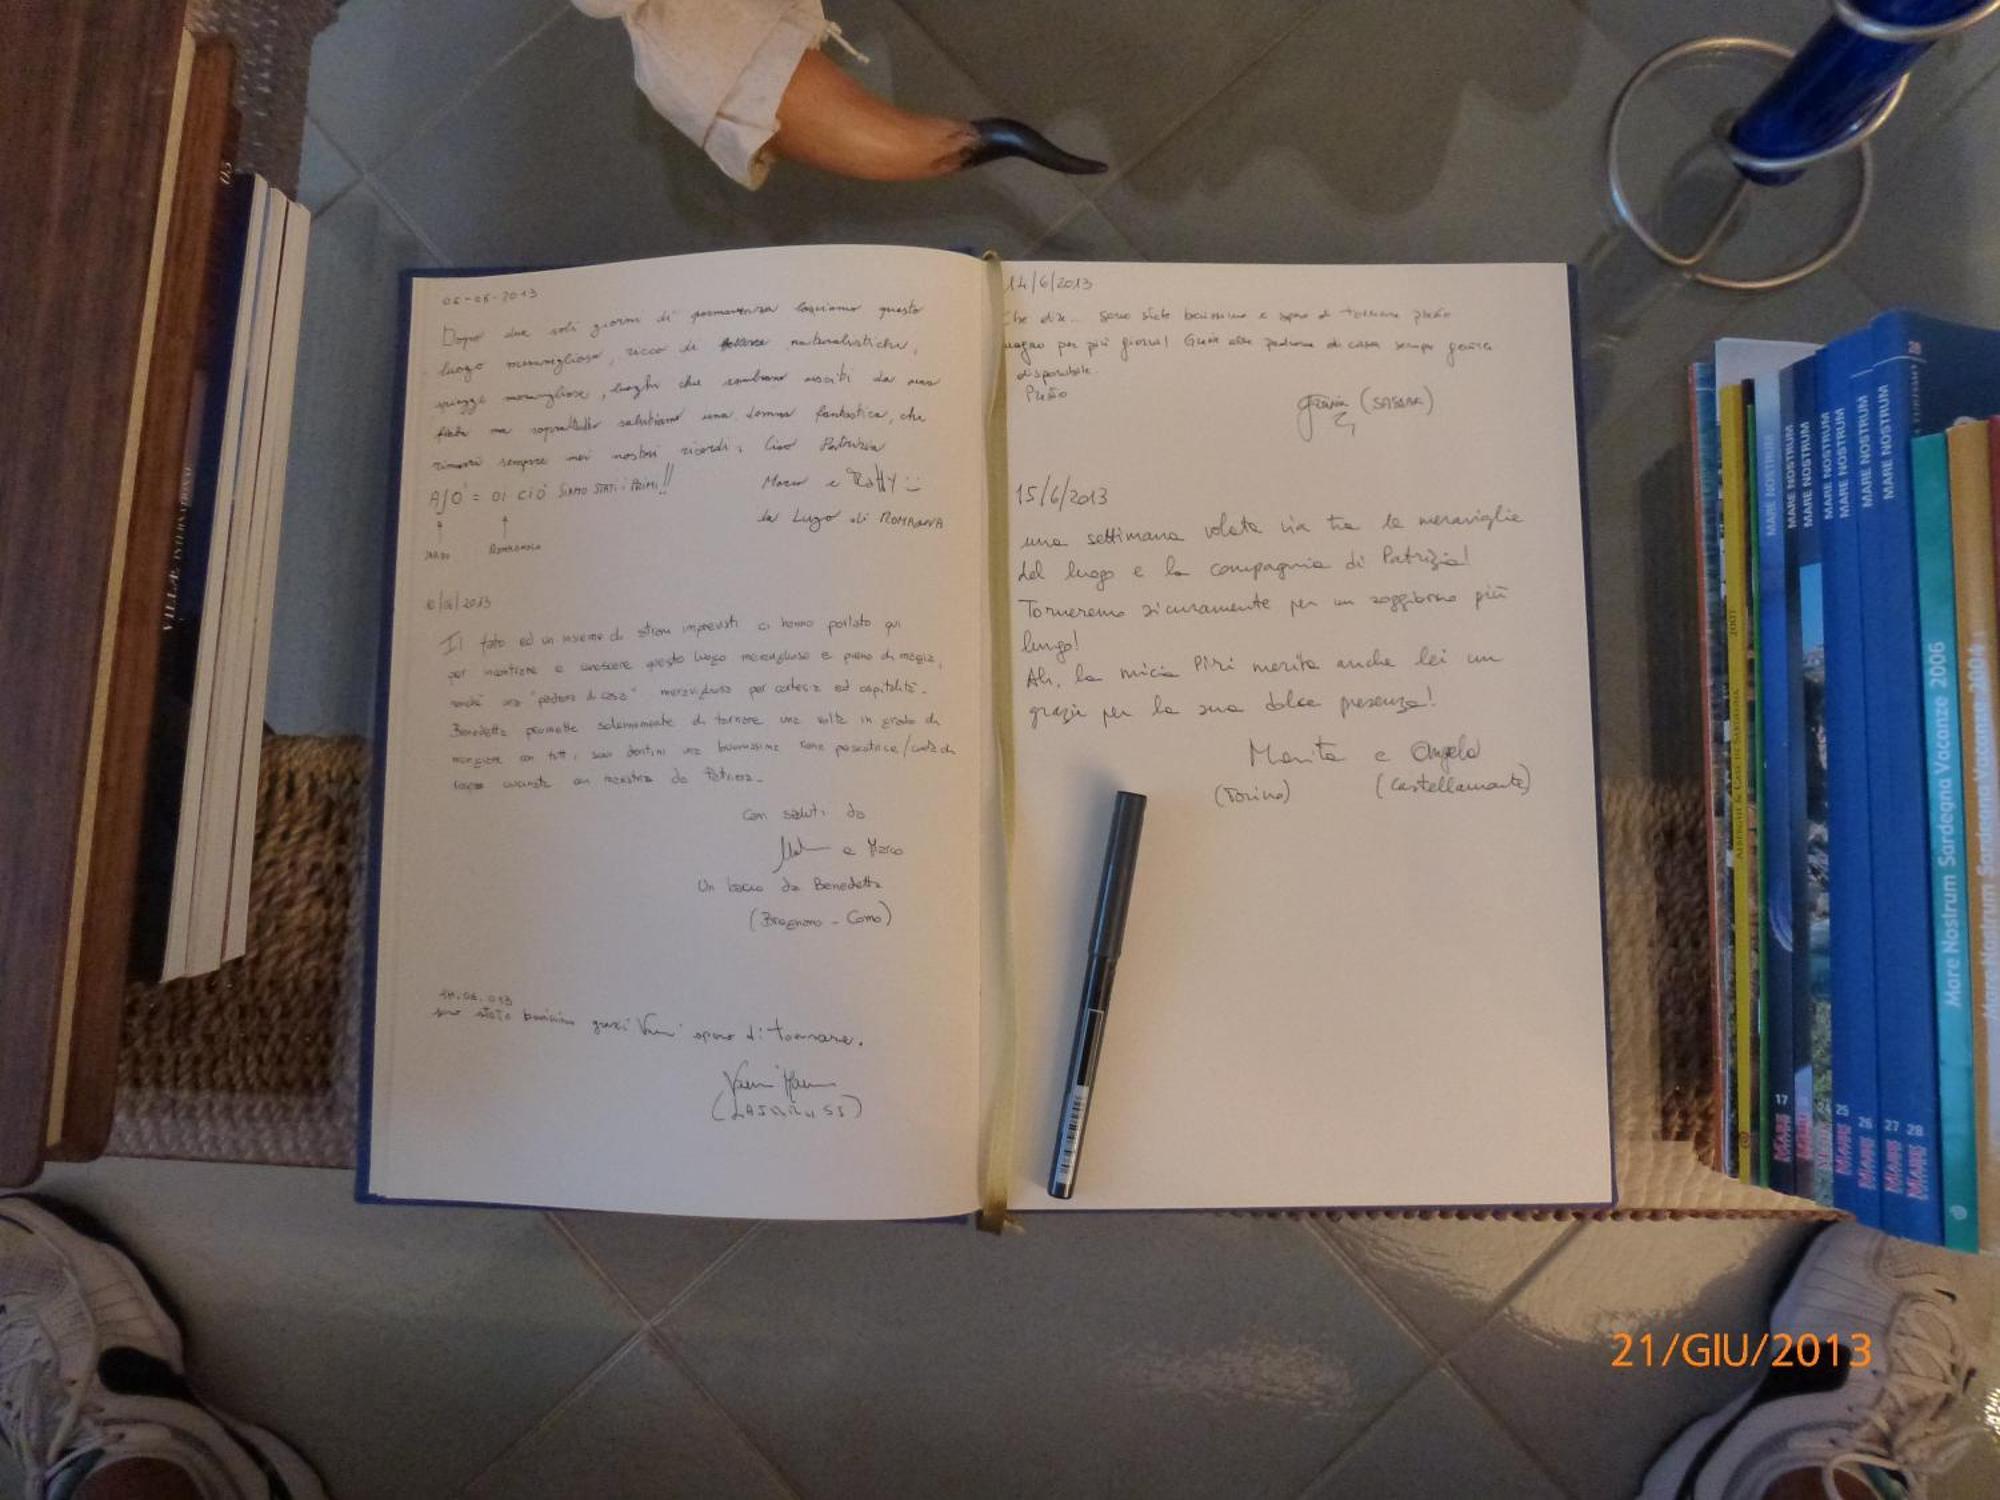 06-06-2013
Dopo due soli giorni di permanenza lasciamo questo
luogo meraviglioso, ricco di bellezze naturalistiche,
spiagge meravigliose, luoghi che sembrano usciti da una
fiaba ma soprattutto salutiamo una donna fantastica, che
rimarrà sempre nei nostri ricordi, Ciao Patrizia
AJO' = OI CIÓ SIAMO STATI I PRIMI!!
Marco e Raffy
da Lugo di ROMAGNA
SARDO
ROMAGNOLO
/06/2013
Il fato ed un insieme di strani imprevisti ci hanno portato qui
per incontrare e conoscere questo luogo meraviglioso e pieno di magia,
nonché una "padrona di casa" meravigliosa per cortesia ed ospitalità.
Benedetta promette solennemente di tornare una volta in grado di
mangiare con tutti i suoi dentini una buonissima rana pescatrice/coda di
rospo cucinata con maestria da Patrizia.
Con saluti da
e Marco
Un bacio da Benedetta
(Bregnano - Como)
.06.013
sono stato benissimo grazie spero di tornare.
14/6/2013
Che dire... sono stata benissimo e spero di tornare presto
magari per più giorni! Grazie alla padrona di casa sempre gentile
disponibile.
Presto
Grazia (SASSARI)
15/6/2013
una settimana volata via tra le meraviglie
del luogo e la compagnia di Patrizia!
Torneremo sicuramente per un soggiorno più
lungo!
Ah, la micia Piri merita anche lei un
grazie per la sua dolce presenza!
Marita e Angelo
(Torino) (Castellamonte)
MARE NOSTRUM
MARE NOSTRUM
MARE NOSTRUM
MARE NOSTRUM
MARE NOSTRUM
MARE NOSTRUM
MARE NOSTRUM
17
25
26
27
28
Mare Nostrum Sardegna Vacanze 2006
Mare Nostrum Sardegna Vacanze 2004
21/GIU/2013